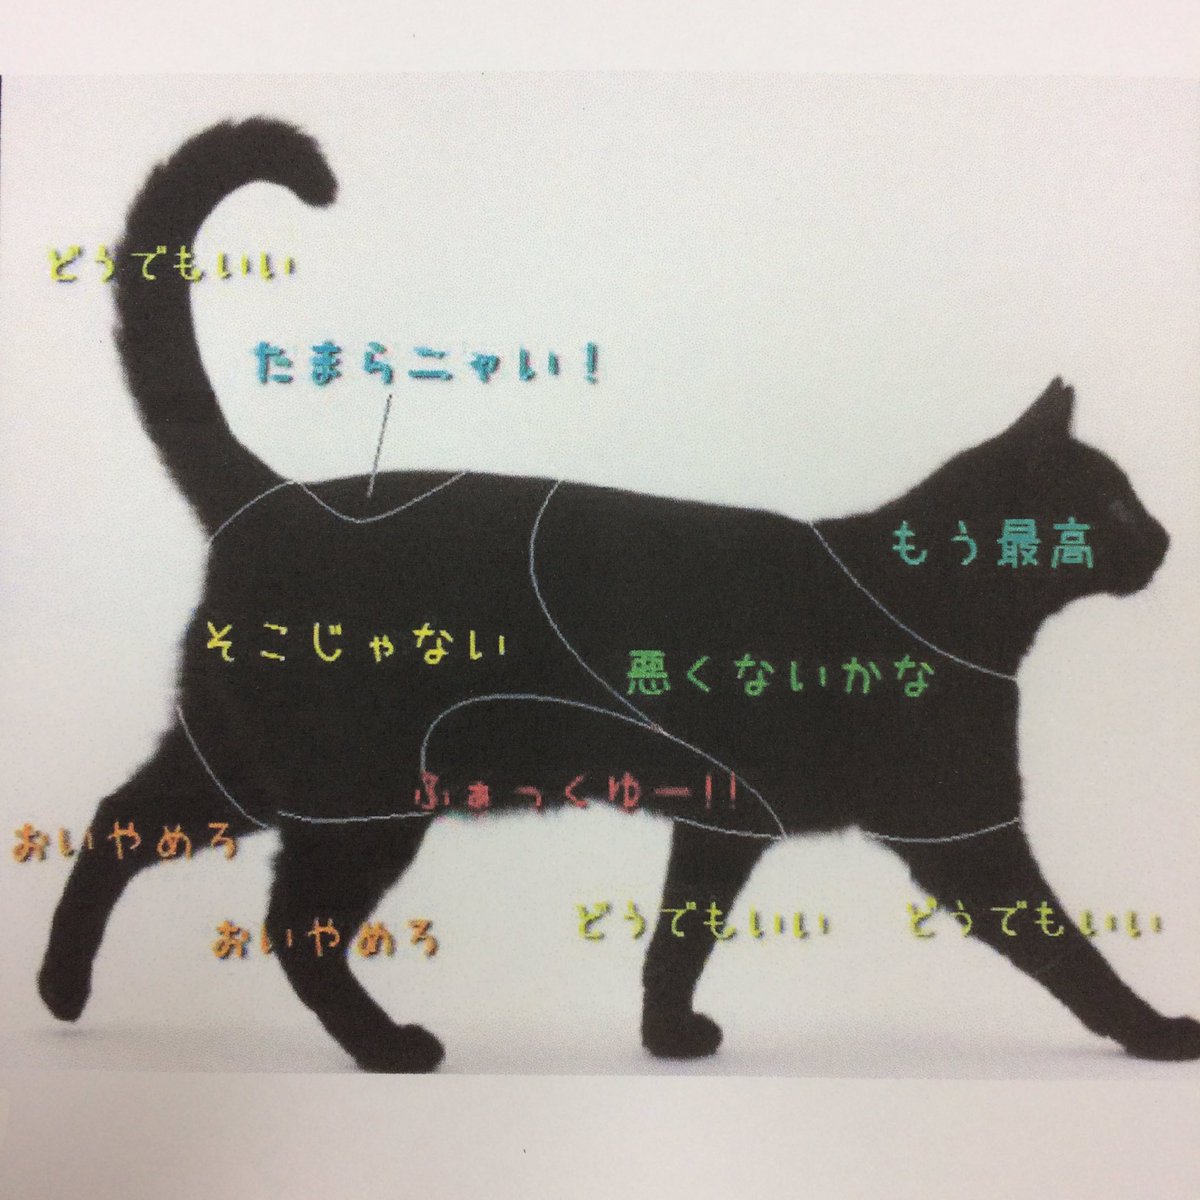 どうでもいい
たまらニャい！
もう最高
そこじゃない
悪くないかな
ふぁっくゆー!!
おいやめろ
おいやめろ
どうでもいい
どうでもいい